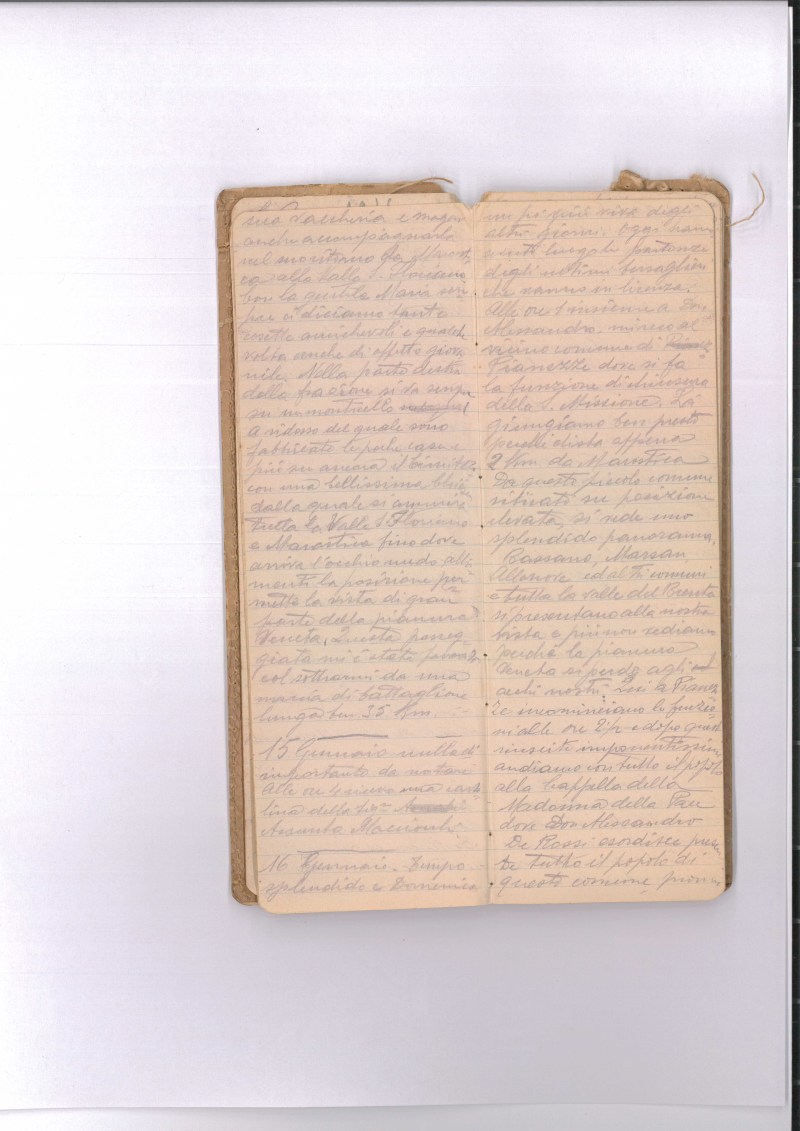 sua vaccheria e
anche accompagnarla
nel mio ritorno da Marosti
ca alla Valle S. Floriano
con la gentile Maria
pre ci diciamo tante
cosette amichevoli e qualche
volta anche di affetto giova
nile. Nella parte destra
della frazione si va
su un monticello
a ridosso del quale sono
fabbricate le poche case e
più su ancora
con una bellissima
dalla quale si ammira
tutta la Valle S. Floriano
e Marostica fino dove
arriva l'occhio nudo
menti la posizione per
mette la vista di gran
parte della pianura
Veneta. Questa passeg
giata mi è stata
col sottrarmi da una
marcia di battaglione
lunga ben 35 Km.
15 Gennaio nulla di
importante da notare
alle ore 4 ricevo una carto
lina della
Assunta
16 Gennaio. Tempo
splendido e Domenica
un pò più viva degli
altri giorni. Oggi
luogo la partenza
degli ultimi bersaglieri
che vanno in licenza.
Alle ore 1 insieme a Don
Alessandro, al
vicino comune di
Pianezze dove si fà
la funzione di chiusura
della S. Missione. Là
giungiamo ben presto
perchè dista appena
2 Km da Marostica
Da questo piccolo comune
situato su posizione
elevata, si vede uno
splendido panorama,
Cassano, Marsan,
ed altri comuni
e tutta la valle del Brenta
si presentano alla nostra
vista e più non vediamo
perchè la pianura
Veneta si perde agli
occhi nostri. Qui a Pianez
ze incominciano le funzio
ni alle ore 2 1/2 e dopo queste
riuscite imponentissime
andiamo con tutto il popolo
alla Cappella della
Madonna della Pace
dove Don Alessandro
De Rossi esordisce presen
te tutto il popolo di
questo comune,